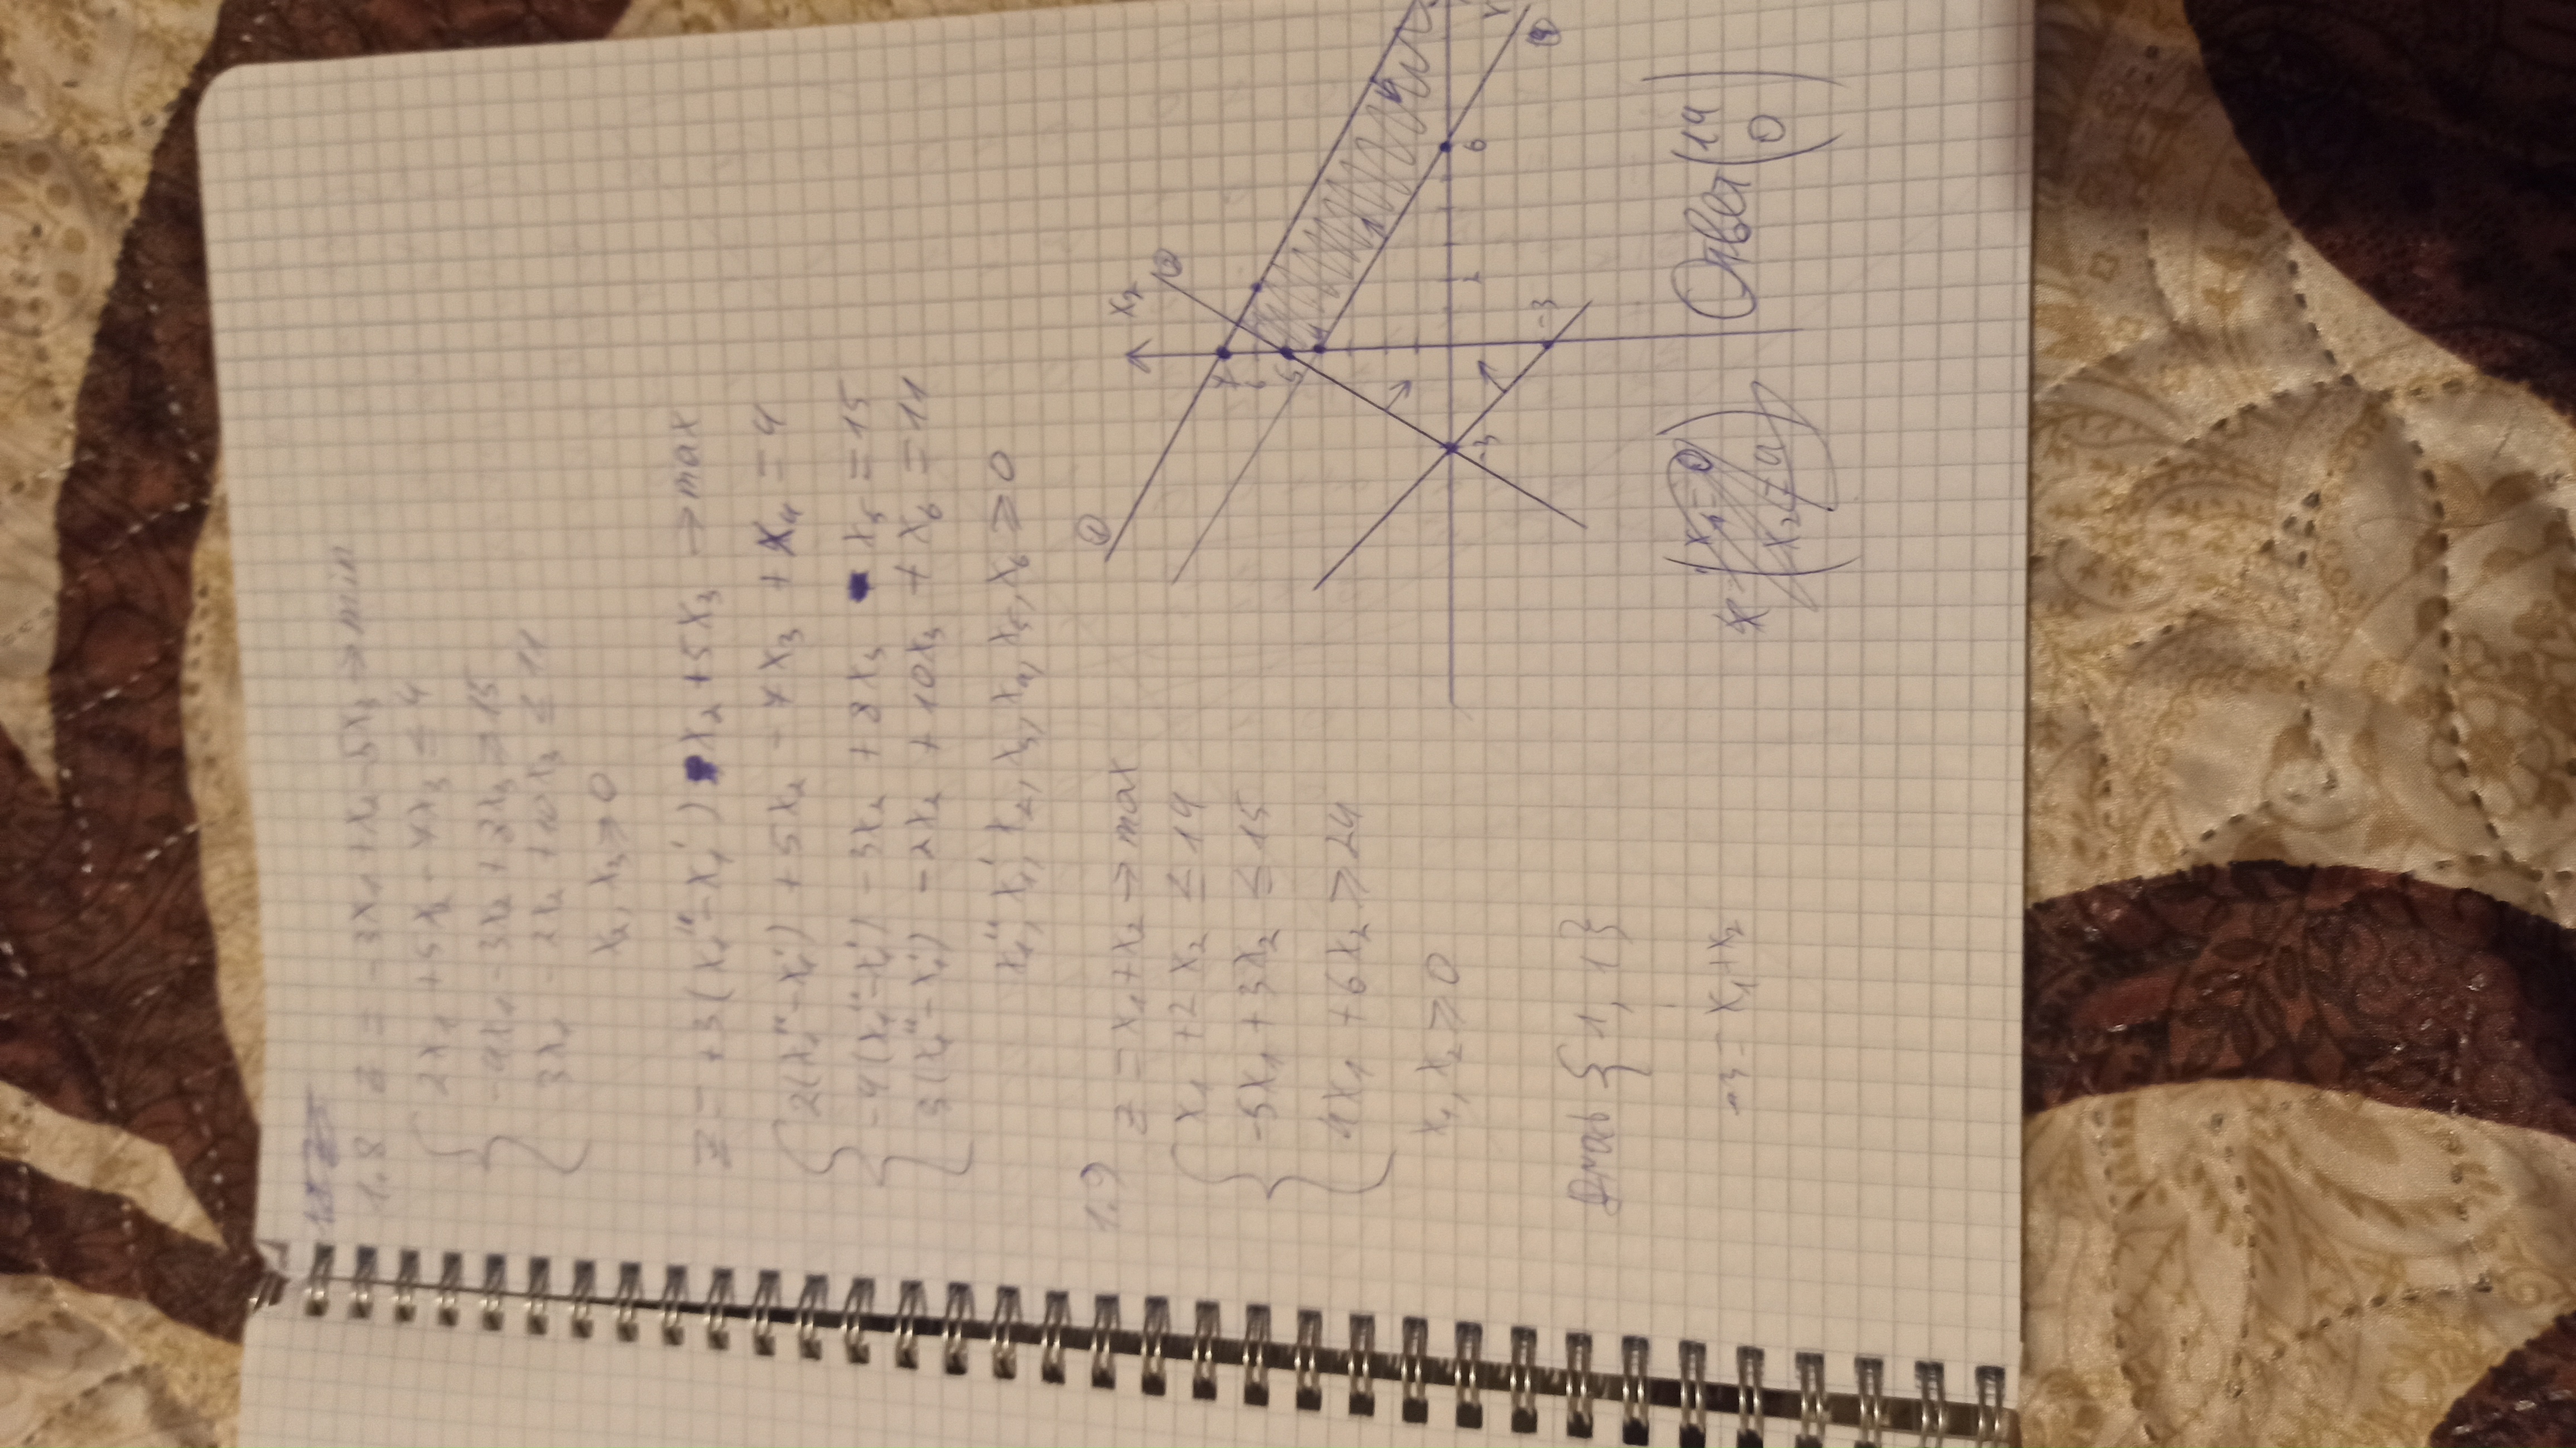 1.8 z = -3x₁ + x₂ - 5x₃ → min
2x₁ + 5x₂ - 7x₃ ≤ 4
-4x₁ - 3x₂ + 8x₃ ≥ 15
3x₁ - 2x₂ + 10x₃ ≤ 11
x₂, x₃ ≥ 0
z = +3(x₁'' - x₁') - x₂ + 5x₃ → max
2(x₁'' - x₁') + 5x₂ - 7x₃ + x₄ = 4
-4(x₁'' - x₁') - 3x₂ + 8x₃ - x₅ = 15
3(x₁'' - x₁') - 2x₂ + 10x₃ + x₆ = 11
x₁'', x₁', x₂, x₃, x₄, x₅, x₆ ≥ 0
1.9
z = x₁ + x₂ → max
x₁ + 2x₂ ≤ 14
-5x₁ + 3x₂ ≤ 15
4x₁ + 6x₂ ≥ 24
x₁, x₂ ≥ 0
{1, 1}
-3 = x₁ + x₂
①
x₂
②
7
6
5
4
-3
2
6
-3
x₁ = 0
x₂ = 4
Ответ (14
0)